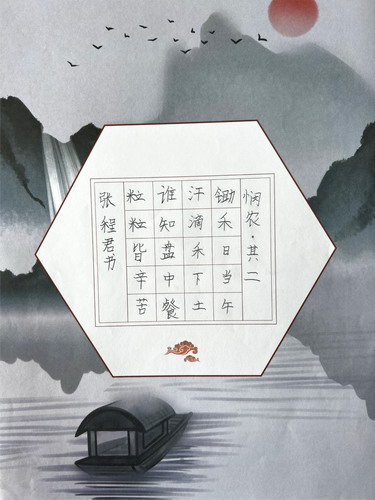 悯农·其二
锄禾日当午
汗滴禾下土
谁知盘中餐
粒粒皆辛苦
张程君书